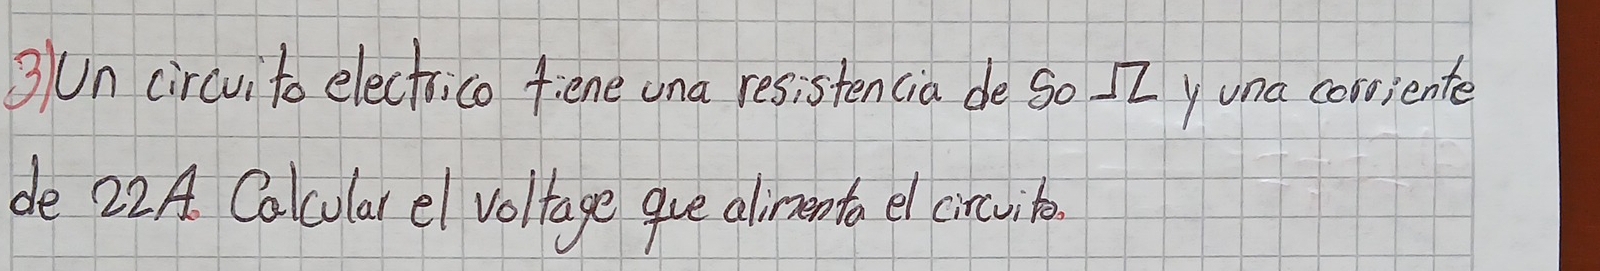 3) Un circuito electrico tiene una resistencia de 50 Ω y una corriente
de 22A. Calcular el voltage que alimenta el circuito.